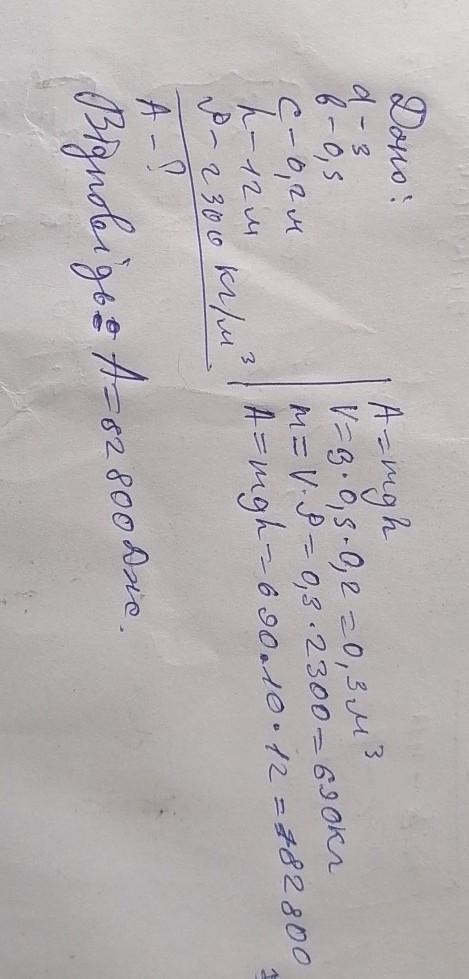 Дано:
a - 3
b - 0,5
c - 0,2 м
h - 12 м
ρ - 2300 кг/м³
A - ?
A = mgh
V = 3 · 0,5 · 0,2 = 0,3 м³
m = V · ρ = 0,3 · 2300 = 690 кг
A = mgh = 690 · 10 · 12 = 82800
Відповідь: A = 82800 Дж.